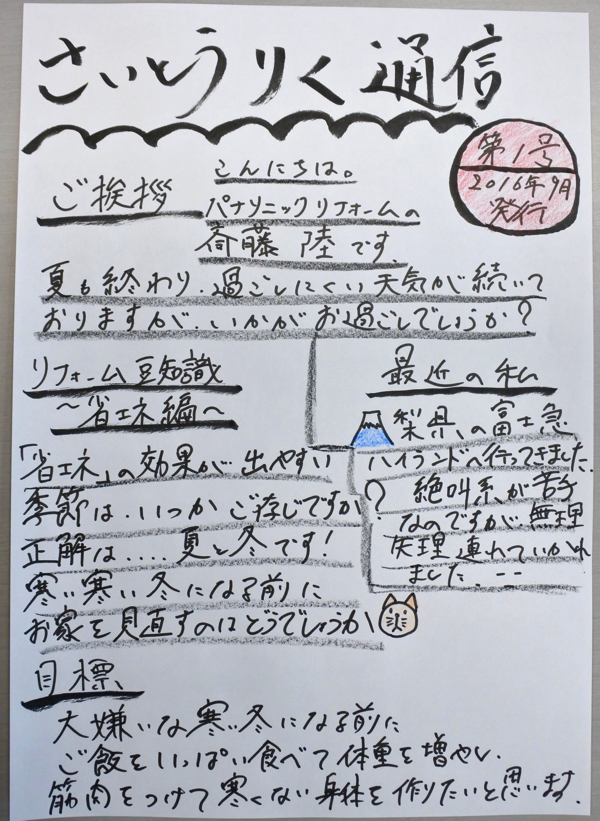 さいとうりく通信
第1号
2016年9月
発行
ご挨拶
こんにちは。
パナソニックリフォームの
斎藤 陸です.
夏も終わり.過ごしにくい天気が続いて
おりますが.いかがお過ごしでしょうか?
リフォーム豆知識
～省エネ編～
「省エネ」の効果が出やすい
季節は.いつかご存じですか?
正解は....夏と冬です!
寒い寒い冬になる前に
お家を見直すのはどうでしょうか
最近の私
梨県の富士急
ハイランドへ行ってきました.
絶叫系が苦手
なのですが無理
矢理連れていかれ
ました...
目標
大嫌いな寒い冬になる前に
ご飯をいっぱい食べて体重を増やし.
筋肉をつけて寒くない身体を作りたいと思います.